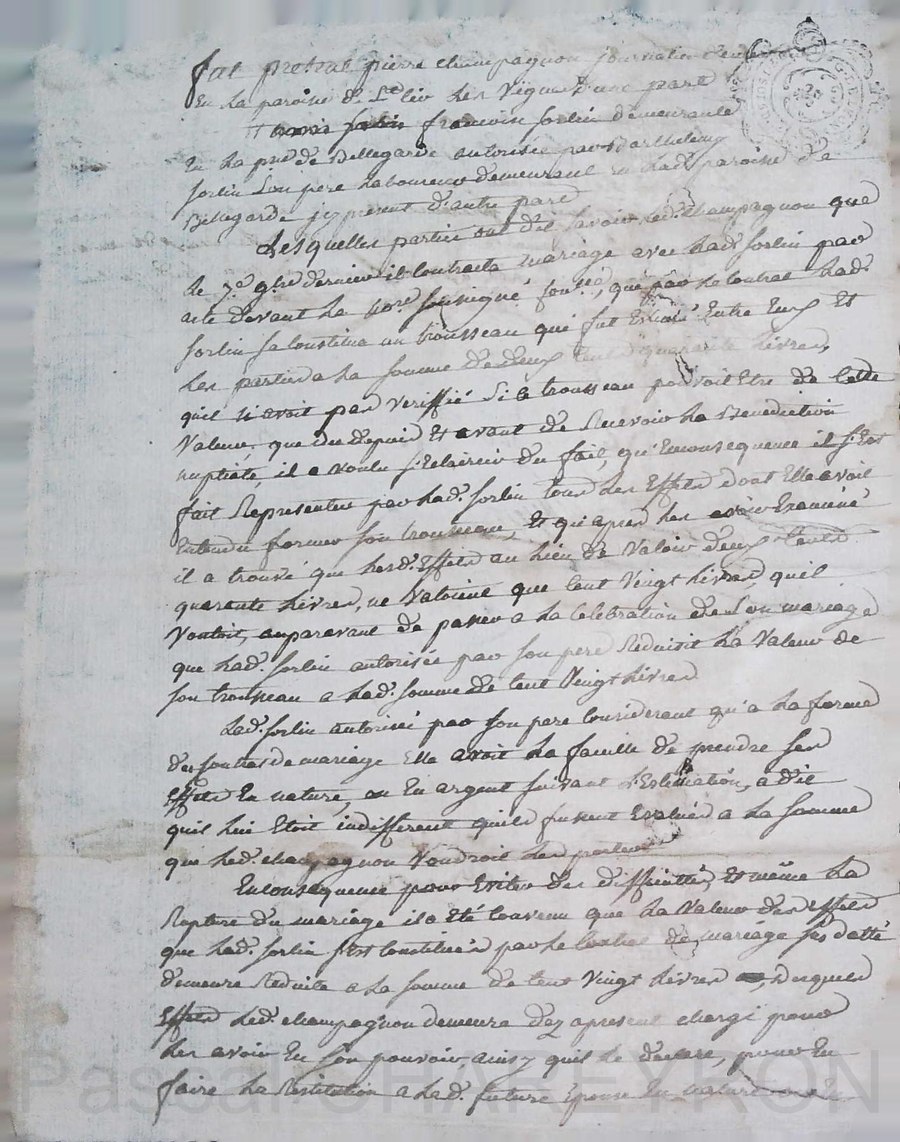 fut present pierre champagnon journalier
En la paroisse de St leu les Vignes d'une part
francoise sorlin demeurante
En la psse de Bellegarde autorisée par Barthelemy
sorlin son pere laboureur demeurant en lad. paroisse de
Bellegarde icy present d'autre part
Lesquelles parties ont dit savoir led. champagnon que
le 7e 9bre dernier il contracta mariage avec lad. sorlin par
acte devant le nore soussigné que par le contrat lad.
sorlin se constitua un trousseau qui fut Estimé Entre Eux Et
les parties a la somme de deux cent quarante livres,
qu'il n'avoit pas veriffié si le trousseau pouvoit Etre de Cette
Valeur, que du depuis Et avant de Recevoir la Benediction
nuptiale, il a voulu s'Eclaircir du fait, qu'En consequence il s'Est
fait Representer par lad. sorlin tous les Effets dont Elle avoit
Entendu former son trousseau, Et qu'apres les avoir Examiné
il a trouvé que lesd. Effets au lieu de Valoir deux Cents
quarante livres, ne Valoient que Cent Vingt livres, qu'il
Vouloit, auparavant de passer a la Celebration de son mariage
que lad. sorlin autorisée par son pere Reduisit la Valeur de
son trousseau a lad. somme de Cent Vingt livres
Lad. sorlin autorisée par son pere Considerant qu'a la forme
du contrat de mariage Elle avoit la faculté de prendre ses
Effets En nature, ou En argent suivant l'Estimation, a dit
qu'il lui Etoit indifferent qu'ils fussent Evalués a la somme
que led. champagnon Voudroit les porter
En Consequence pour Eviter des difficultés, Et même la
Rupture du mariage il a Eté Convenu que la Valeur des effets
que lad. sorlin s'est Constitués par le Contrat de mariage sus datté
demeure Reduite a la somme de Cent Vingt livres, desquels
Effets led. champagnon demeure dez apresent chargé pour
les avoir En son pouvoir, ainsy qu'il le declare, pour En
faire la Restitution a lad. future Epouse En nature ou En
Pascal CHAREYRON